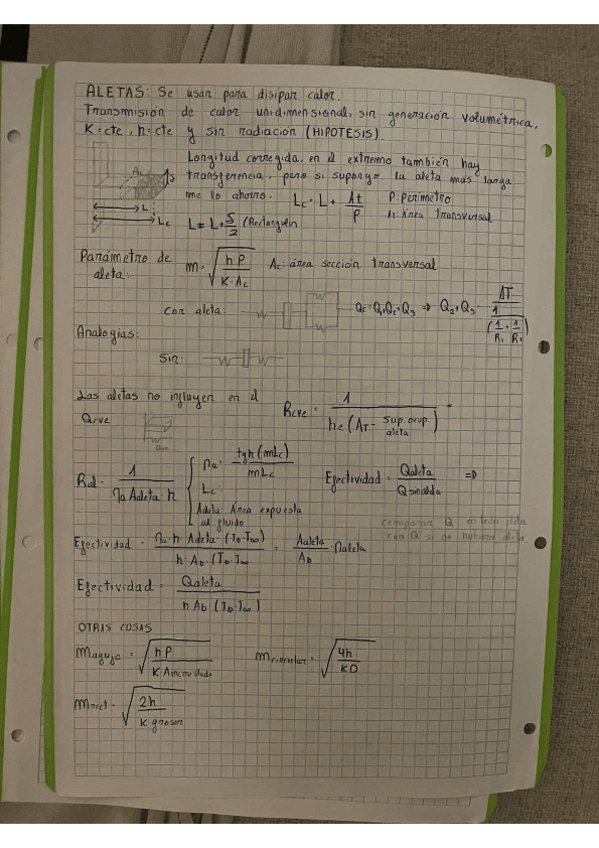 ALETAS: Se usan para disipar calor.
Transmisión de calor unidimensional, sin generación volumétrica,
K=cte, h=cte y sin radiación (HIPOTESIS).
Longitud corregida, en el extremo también hay
transferencia, pero si supongo la aleta más larga
me lo ahorro. Lc = L + At/P P: perímetro
A: Área transversal
L
Lc
Lc = L + δ/2 (Rectangular
Parámetro de aleta: m = √(hP / K·Ac) Ac: área sección transversal
Con aleta:
Analogías:
Sin:
Las aletas no influyen en el
Qcve
Rcve = 1 / he (AT - Sup. ocup. aleta)
Ral = 1 / ηa Aaleta · h
ηa = tgh(mLc) / mLc
Lc:
Aaleta Área expuesta
al fluido
Efectividad = Qaleta / Qdesnuda =>
comparar Q
con Q si no hubiera aleta.
Efectividad = ηa · h · Aaleta · (Tb - T∞) / h · Ab · (Tb - T∞) = Aaleta / Ab · ηaleta
Efectividad = Qaleta / h Ab · (Tb - T∞)
OTRAS COSAS
maguja = √(hP / K·Aincrustada)
mcircular = √(4h / KD)
mrect = √(2h / K grosor)